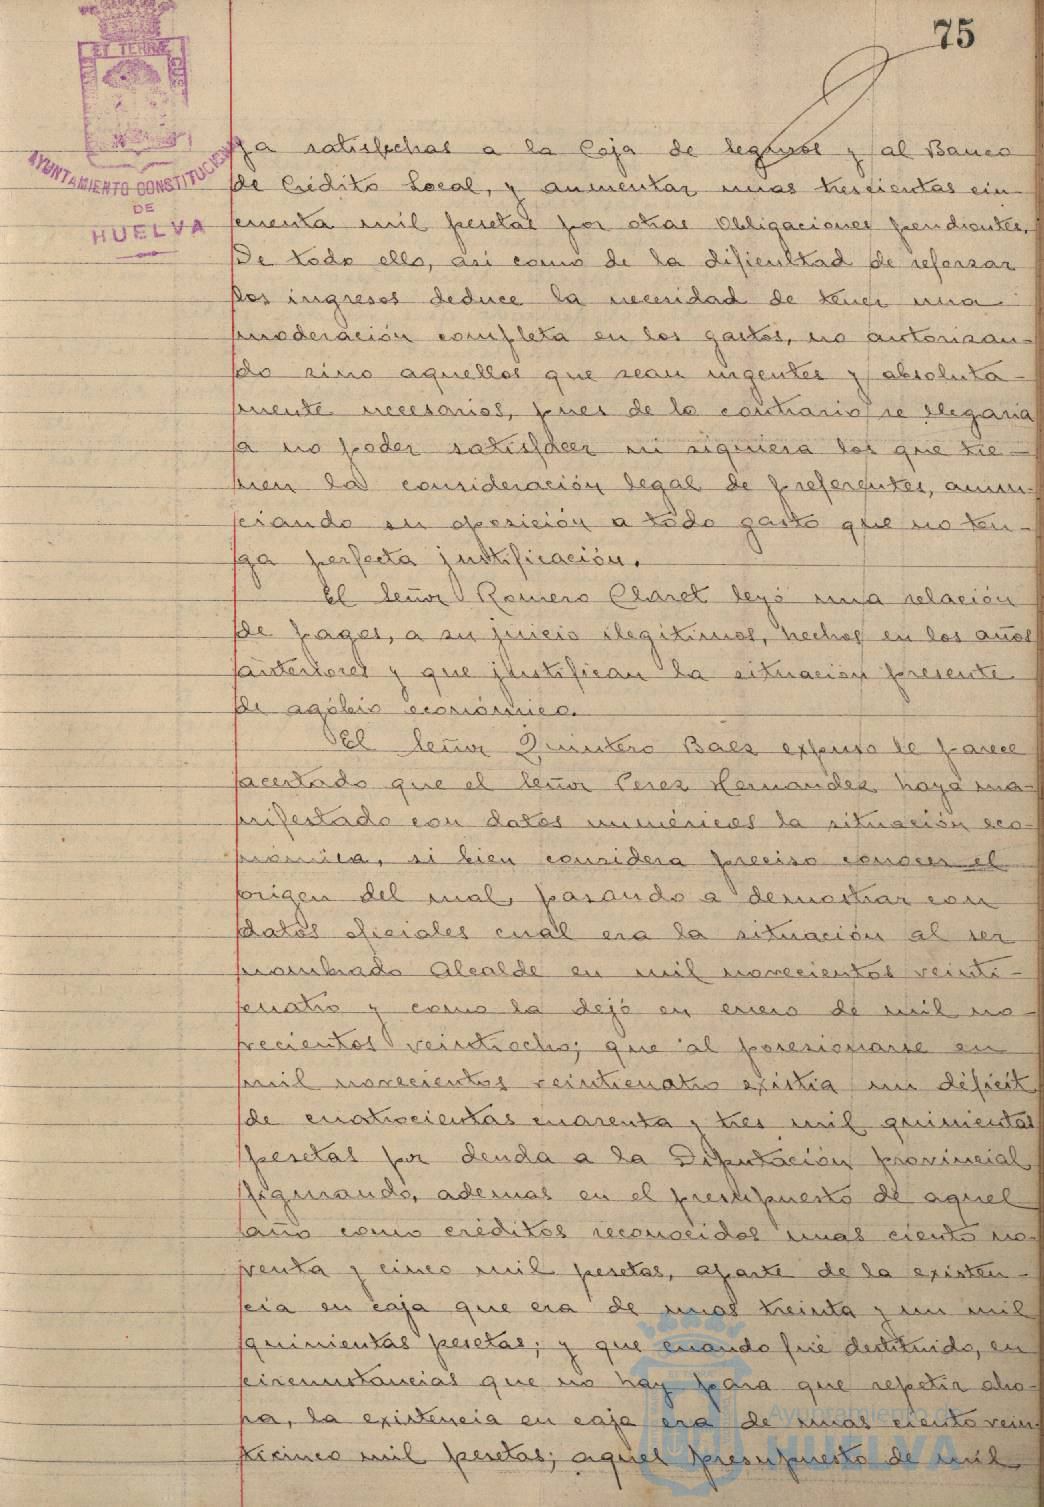 75
ET TERRÆ
AYUNTAMIENTO CONSTITUCIONAL
DE
HUELVA
ya satisfechas a la Caja de Seguros y al Banco
de Crédito Local, y aumentar unas trescientas cin-
cuenta mil pesetas por otras Obligaciones pendientes.
De todo ello, asi como de la dificultad de reforzar
los ingresos deduce la necesidad de tener una
moderación completa en los gastos, no autorizan-
do sino aquellos que sean urgentes y absoluta-
mente necesarios, pues de lo contrario se llegaria
a no poder satisfacer ni siquiera los que tie-
nen la consideración legal de preferentes, anun-
ciando su oposición a todo gasto que no ten-
ga perfecta justificación.
El Señor Romero Claret leyó una relación
de pagos, a su juicio ilegitimos, hechos en los años
anteriores y que justifican la situación presente
de agobio económico.
El Señor Quintero Baez expuso le parece
acertado que el Señor Perez Hernandez haya ma-
nifestado con datos numéricos la situación eco-
nómica, si bien considera preciso conocer el
origen del mal, pasando a demostrar con
datos oficiales cual era la situación al ser
nombrado Alcalde en mil novecientos veinti-
cuatro y como la dejó en enero de mil no-
vecientos veintiocho; que al posesionarse en
mil novecientos veinticuatro existia un déficit
de cuatrocientas cuarenta y tres mil quinientas
pesetas por deuda a la Diputación provincial
figurando, ademas en el presupuesto de aquel
año como créditos reconocidos unas ciento no-
venta y cinco mil pesetas, aparte de la existen-
cia en caja que era de unas treinta y un mil
quinientas pesetas; y que cuando fué destituido, en
circunstancias que no hay para que repetir aho-
ra, la existencia en caja era de unas ciento vein-
ticinco mil pesetas; aquel presupuesto de mil
Ayuntamiento de
HUELVA